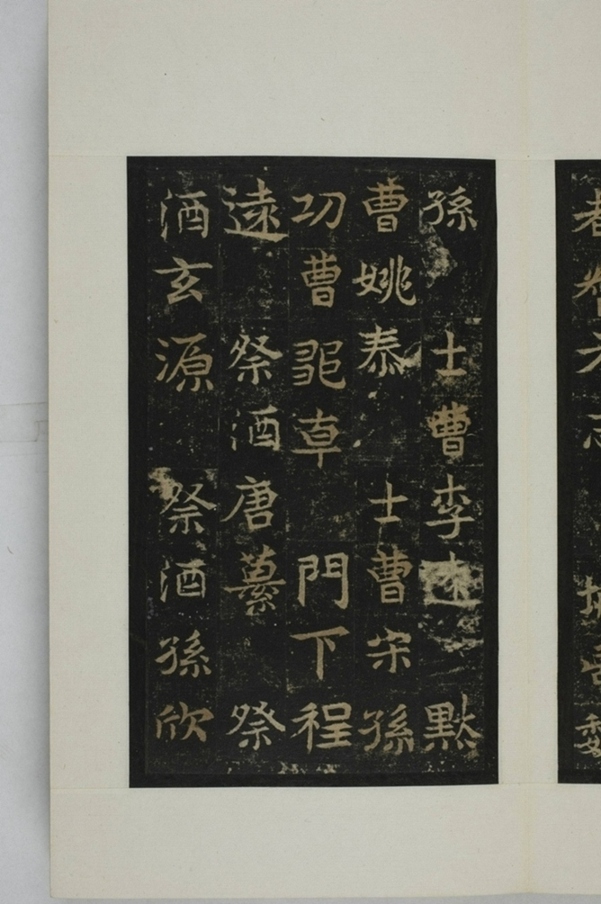 孫 士曹李 默
曹姚泰 士曹宋孫
功曹 門下程
遠 祭酒唐 祭
酒玄源 祭酒孫欣